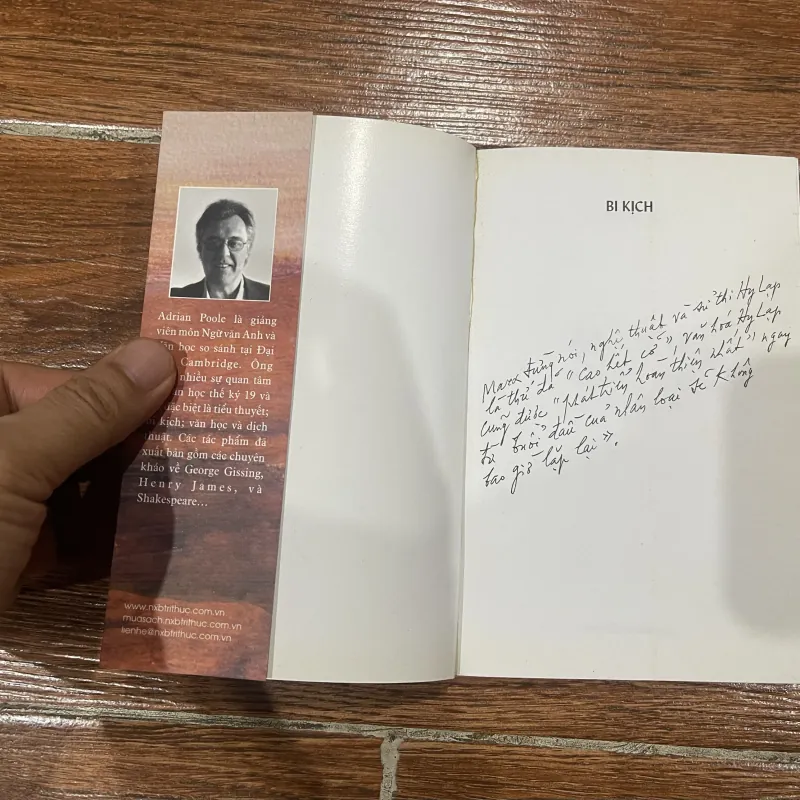 Adrian Poole là giảng
viên môn Ngữ văn Anh và
học so sánh tại Đại
Cambridge. Ông
nhiều sự quan tâm
học thế kỷ 19 và
biệt là tiểu thuyết;
kịch; văn học và dịch
thuật. Các tác phẩm đã
xuất bản gồm các chuyên
khảo về George Gissing,
Henry James, và
Shakespeare...
www.nxbtrithuc.com.vn
muasach.nxbtrithuc.com.vn
lienhe@nxbtrithuc.com.vn
BI KỊCH
Marx từng nói, nghệ thuật và sử thi Hy Lạp
là thứ đã "cao hết cỡ", văn hoá Hy Lạp
cũng được "phát triển hoàn thiện nhất" ngay
từ buổi đầu của nhân loại sẽ không
bao giờ lặp lại".